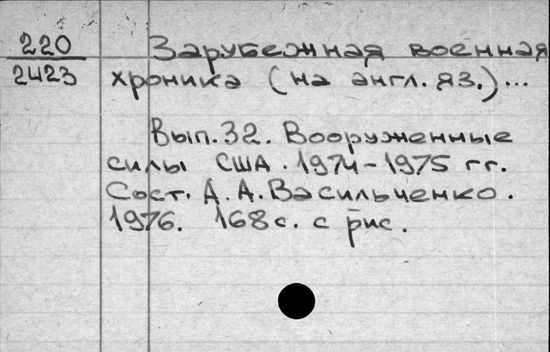 220
2423
Зарубежная военная
хроника (на англ. яз.)...
Вып. 32. Вооруженные
силы США. 1974-1975 гг.
Сост. А. А. Васильченко.
1976. 168 с. с рис.